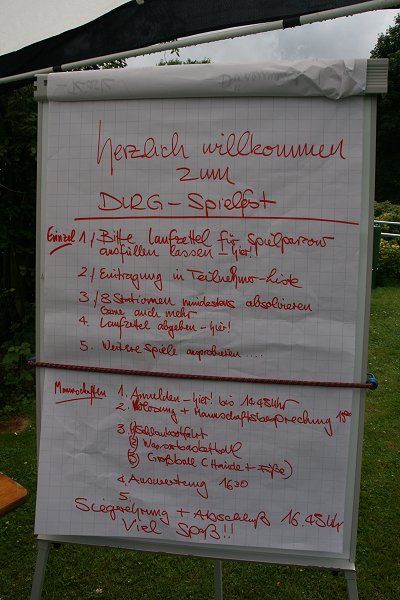 Herzlich willkommen
zum
DLRG-Spielfest
Einzel 1/ Bitte Laufzettel für Spielparcour
ausfüllen lassen - hier!
2/ Eintragung in Teilnehmer-Liste
3/ 8 Stationen mindestens absolvieren
Gerne auch mehr
4. Laufzettel abgeben - hier!
5. Weitere Spiele ausprobieren ....
Mannschaften 1. Anmelden - hier! bis 14.45 Uhr
2. Auslosung + Mannschaftsbesprechung
3. ① Schlauchbootfahrt
② Wasserbasketball
③ Großball (Hände + Füße)
4. Auswertung 1630
5.
Siegerehrung + Abschluß 16.45 Uhr
Viel Spaß!!